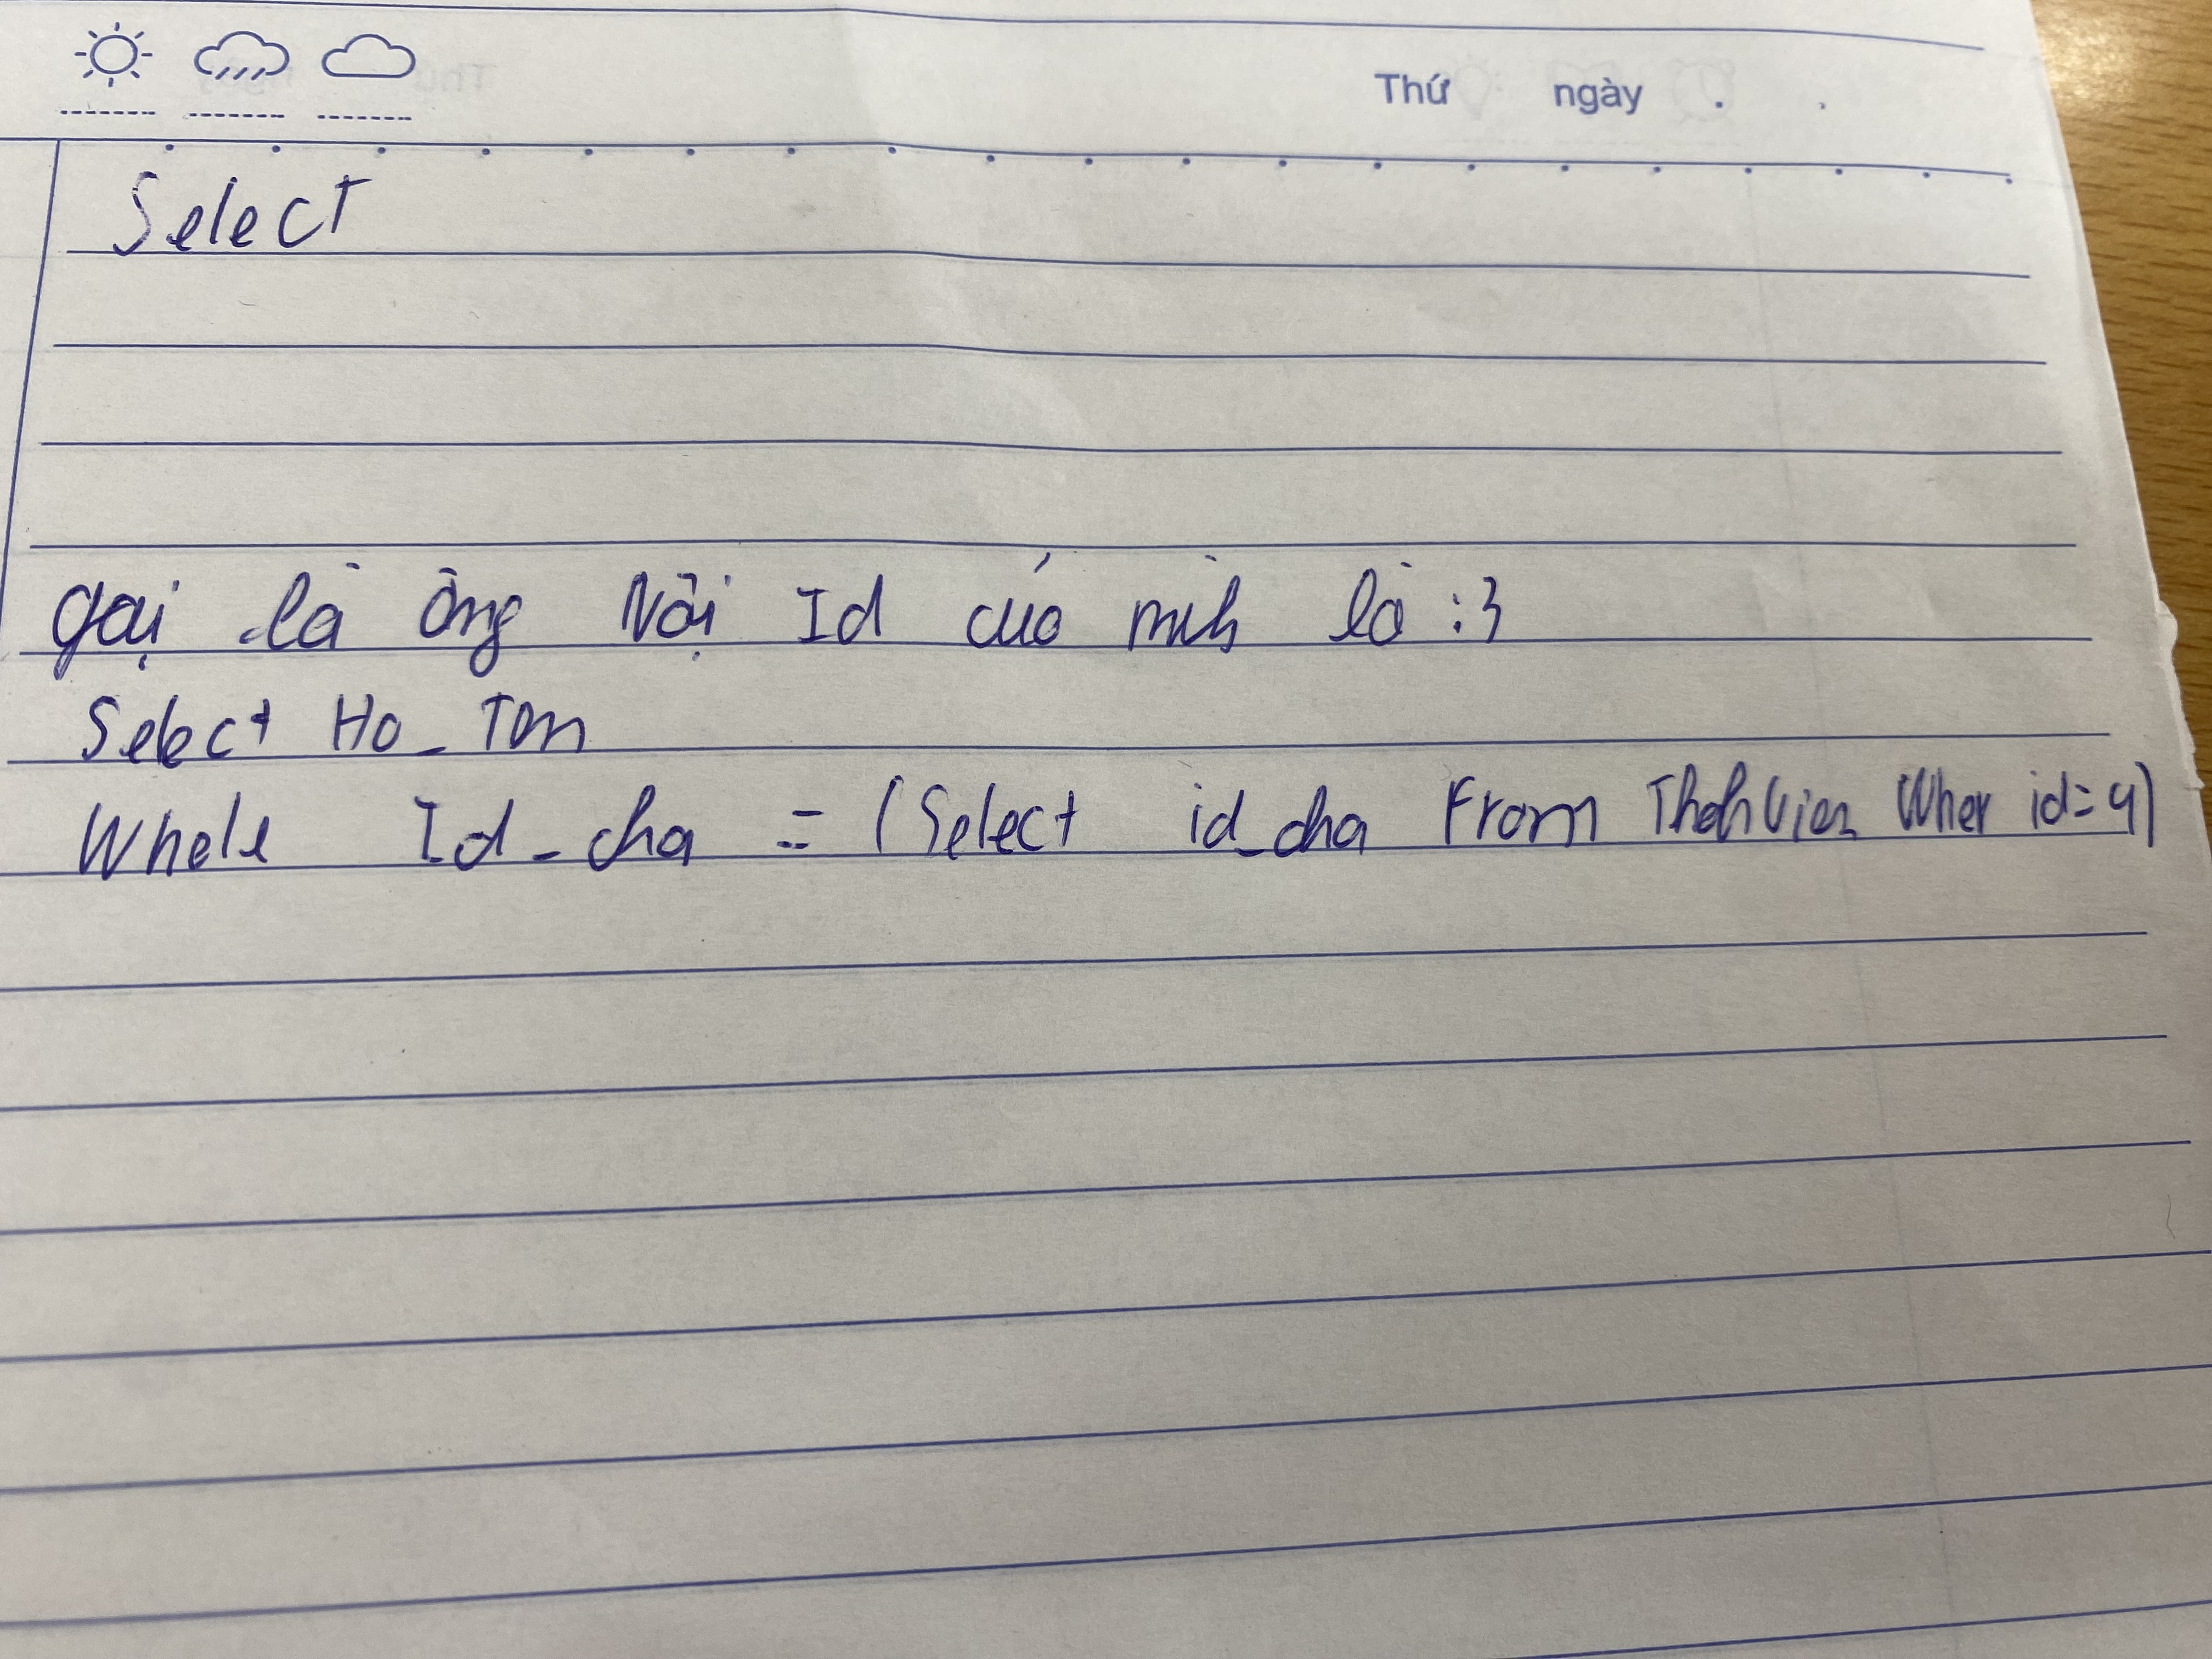 Thứ ngày
Select
Gọi là ông Nội Id của mình là : 3
Select Ho_Ten
Whele Id_cha = (Select id_cha From ThahVien Wher id=4)